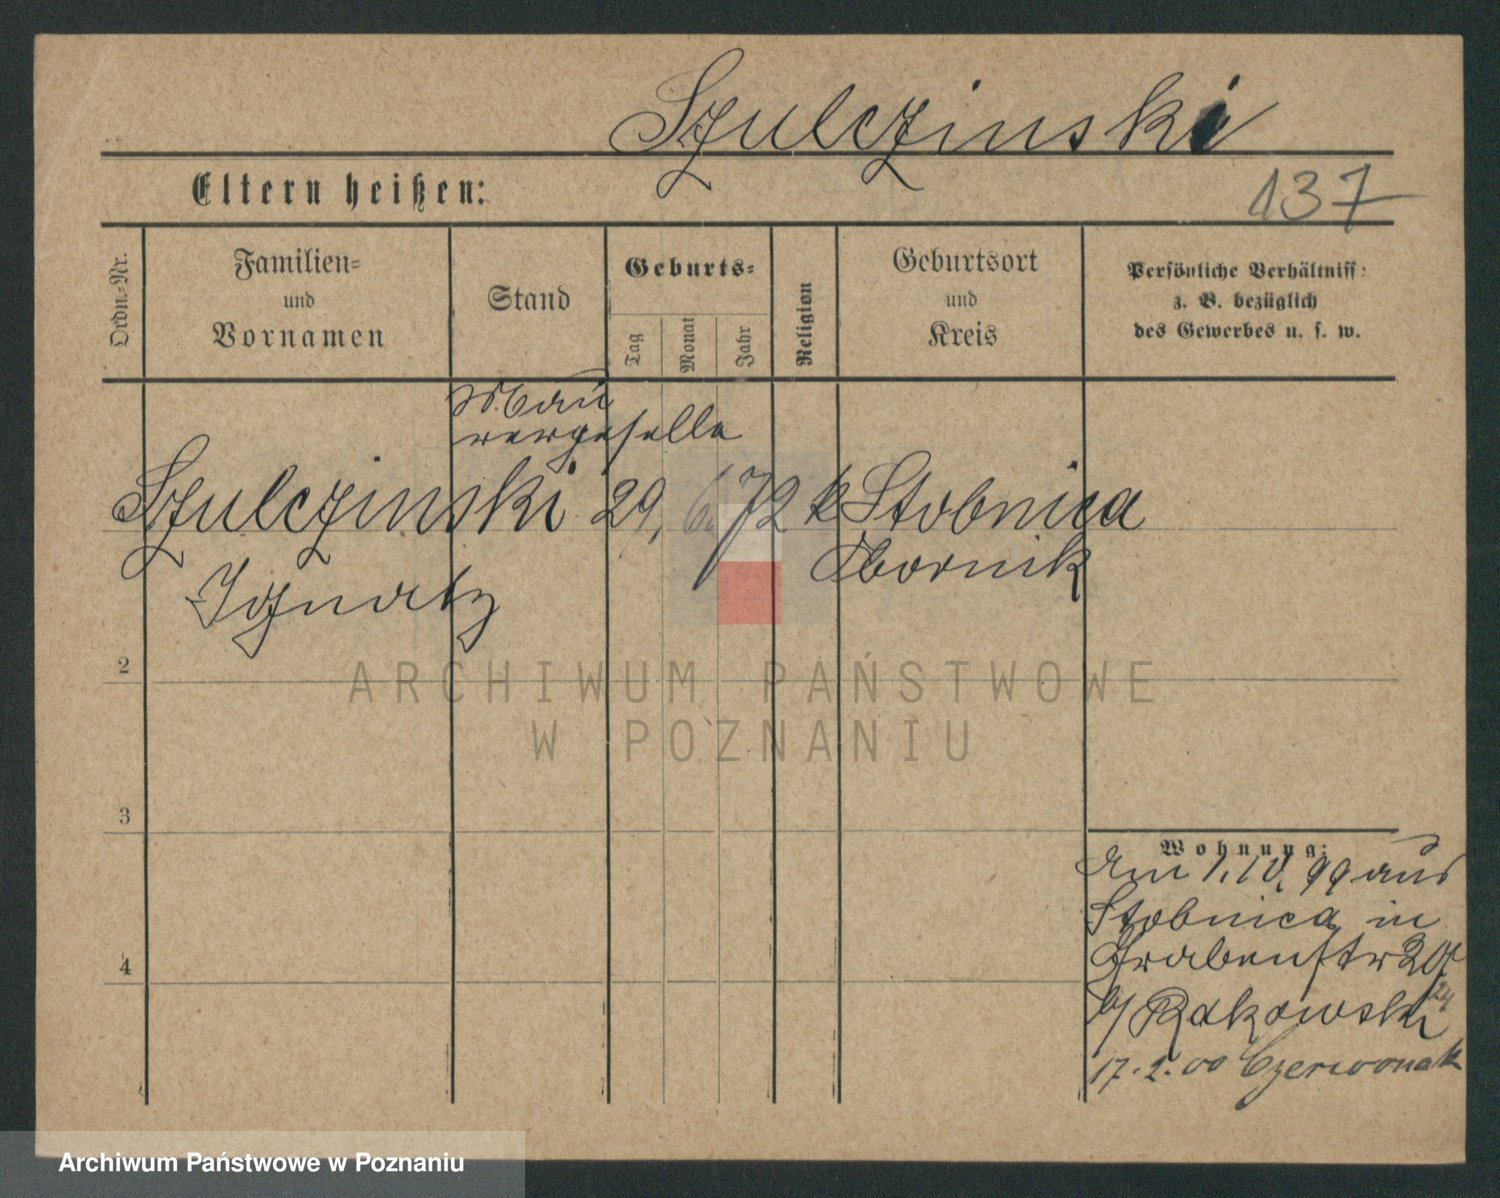 Szulczinski
Eltern heißen:
137
Ordn.-Nr.
Familien-
und
Vornamen
Stand
Geburts-
Tag
Monat
Jahr
Religion
Geburtsort
und
Kreis
Persönliche Verhältniss:
z. B. bezüglich
des Gewerbes u. s. w.
Mau
rergeselle
Szulczinski 29, 6. 72 k Stobnica
Ignatz Obornik
2
ARCHIWUM PAŃSTWOWE
W POZNANIU
3
Wohnung:
Am 1. IV. 99 aus
Stobnica in
4
Grabenstr
b/ Rakowski
17. 2. 00 Czerwonak
Archiwum Państwowe w Poznaniu